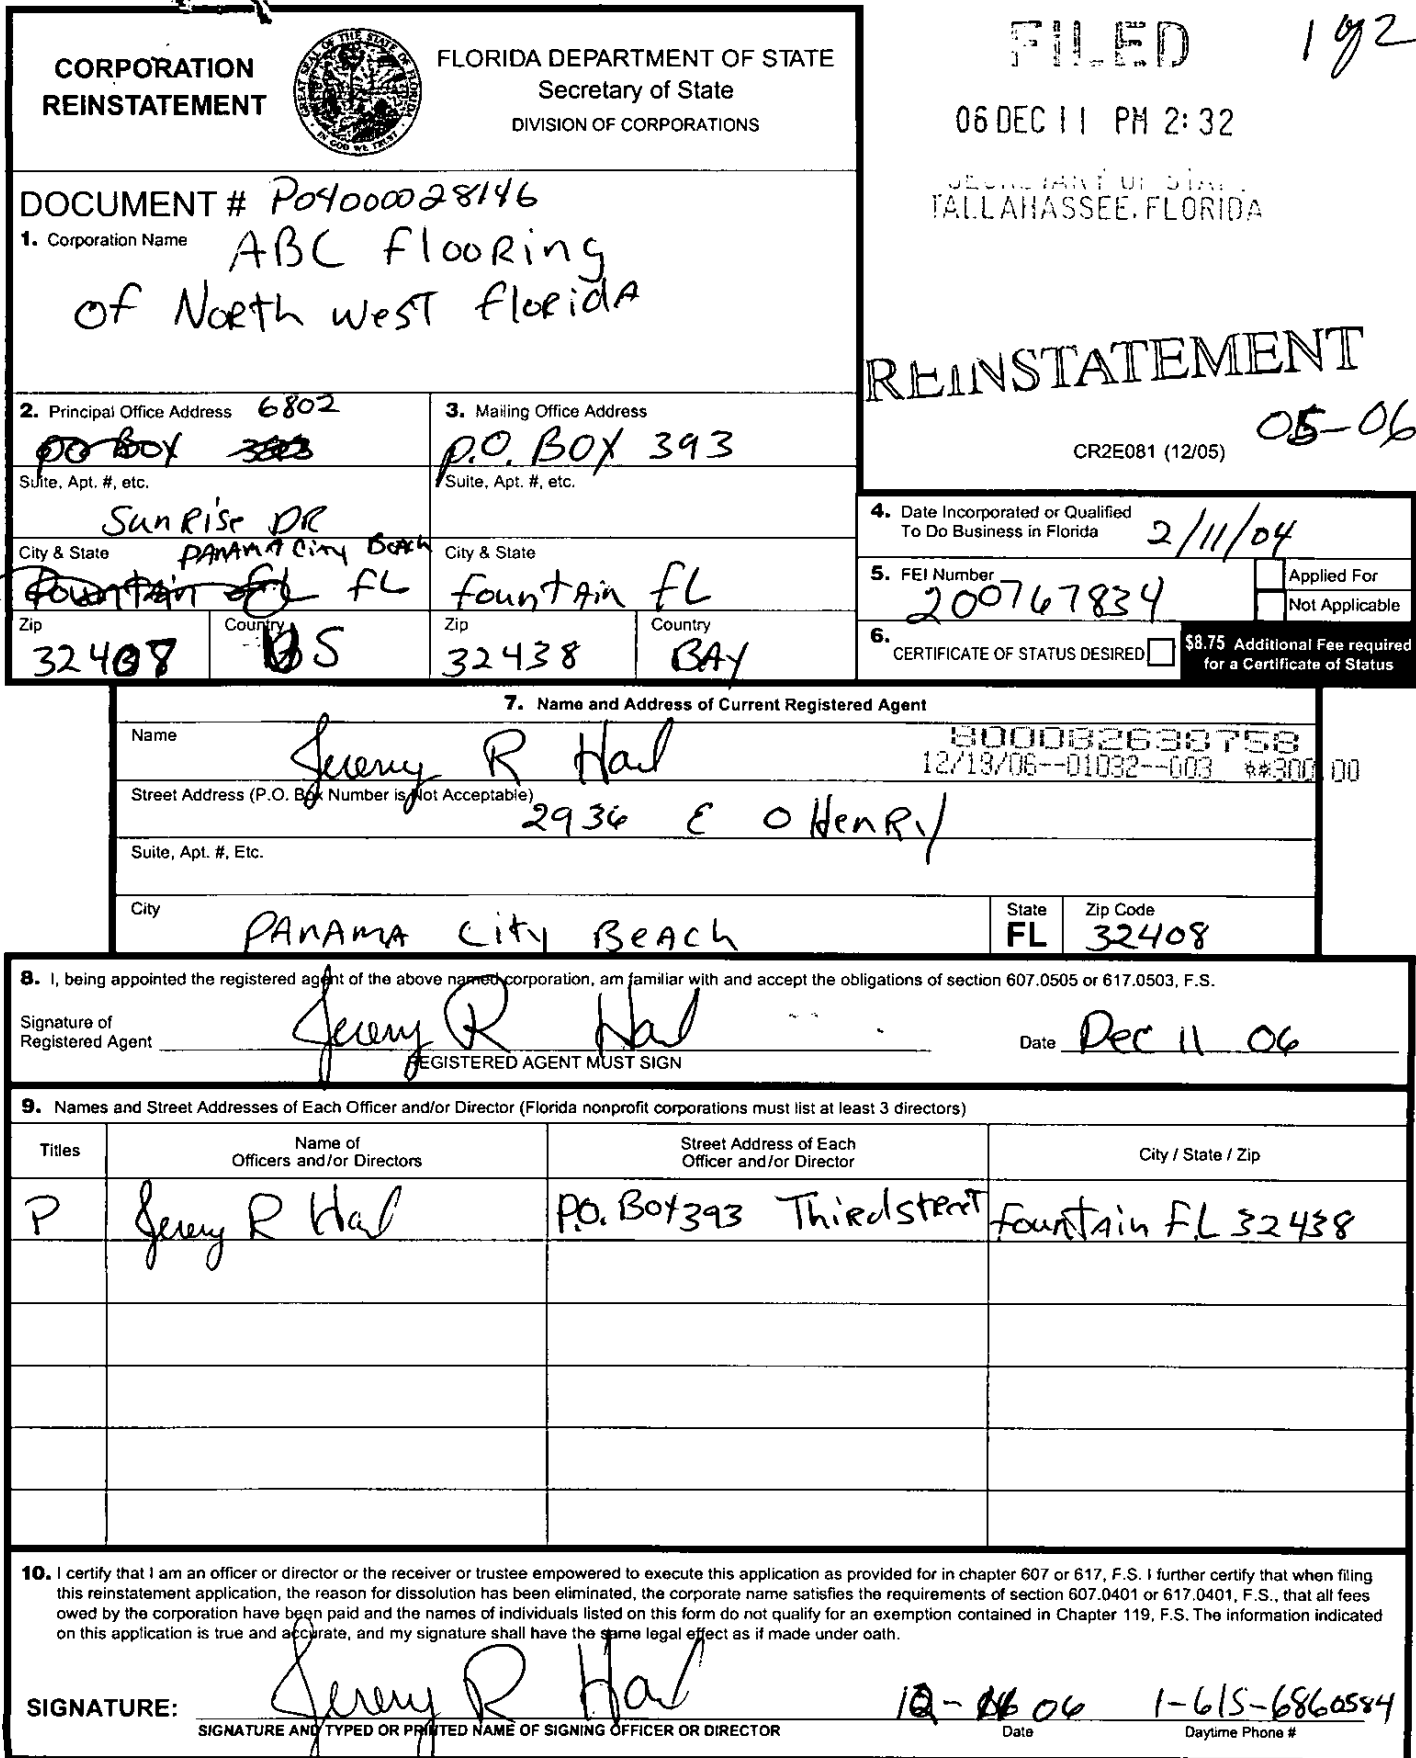 CORPORATION
REINSTATEMENT
FLORIDA DEPARTMENT OF STATE
Secretary of State
DIVISION OF CORPORATIONS
FILED
1 of 2
06 DEC 11 PM 2:32
SECRETARY OF STATE
TALLAHASSEE, FLORIDA
DOCUMENT # P04000028146
1. Corporation Name ABC flooRing
of NoRth west floRidA
REINSTATEMENT
05-06
CR2E081 (12/05)
2. Principal Office Address 6802
PO BOX
3. Mailing Office Address
P.O. BOX 393
Suite, Apt. #, etc.
SunRise DR
Suite, Apt. #, etc.
City & State PANAMA City BeAch
fountain FL fL
City & State
fountAin fL
Zip
32407
Country
US
Zip
32438
Country
BAY
4. Date Incorporated or Qualified
To Do Business in Florida 2/11/04
5. FEI Number
200767834
Applied For
Not Applicable
6. CERTIFICATE OF STATUS DESIRED
$8.75 Additional Fee required
for a Certificate of Status
7. Name and Address of Current Registered Agent
Name Jeremy R Hail
800082638758
12/13/06--01032--003 **300.00
Street Address (P.O. Box Number is Not Acceptable)
2936 E O HenRy
Suite, Apt. #, Etc.
City
PAnAmA City BeAch
State
FL
Zip Code
32408
8. I, being appointed the registered agent of the above named corporation, am familiar with and accept the obligations of section 607.0505 or 617.0503, F.S.
Signature of
Registered Agent Jeremy R Hail
REGISTERED AGENT MUST SIGN
Date Dec 11 06
9. Names and Street Addresses of Each Officer and/or Director (Florida nonprofit corporations must list at least 3 directors)
Titles
Name of
Officers and/or Directors
Street Address of Each
Officer and/or Director
City / State / Zip
P Jeremy R Hail P.O. Box 393 ThiRdstReet fountAin F.L 32438
10. I certify that I am an officer or director or the receiver or trustee empowered to execute this application as provided for in chapter 607 or 617, F.S. I further certify that when filing
this reinstatement application, the reason for dissolution has been eliminated, the corporate name satisfies the requirements of section 607.0401 or 617.0401, F.S., that all fees
owed by the corporation have been paid and the names of individuals listed on this form do not qualify for an exemption contained in Chapter 119, F.S. The information indicated
on this application is true and accurate, and my signature shall have the same legal effect as if made under oath.
SIGNATURE: Jeremy R Hail
SIGNATURE AND TYPED OR PRINTED NAME OF SIGNING OFFICER OR DIRECTOR
06
Date
1-615-6860584
Daytime Phone #